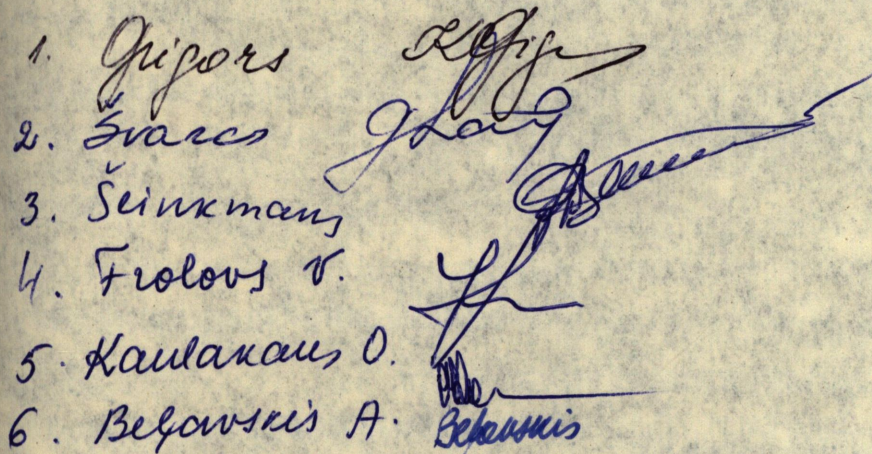 1. Grigors
2. Švarcs
3. Šeinkmans
4. Frolovs V.
5. Kaulakans O.
6. Beļavskis A. Beļavskis